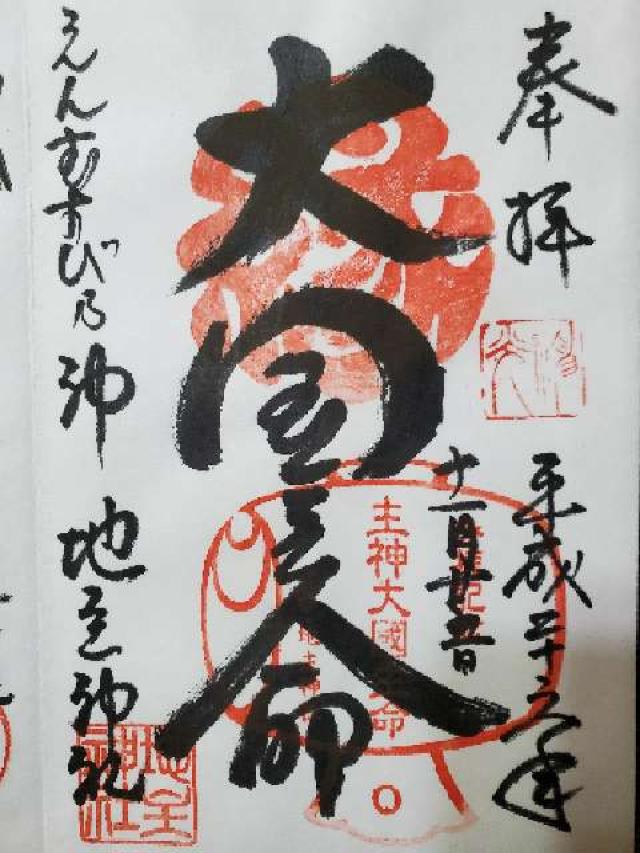 奉拝
平成二十六年
十一月廿五日
大国主命
えんむすび乃神 地主神社
主神大國主命
地主神社